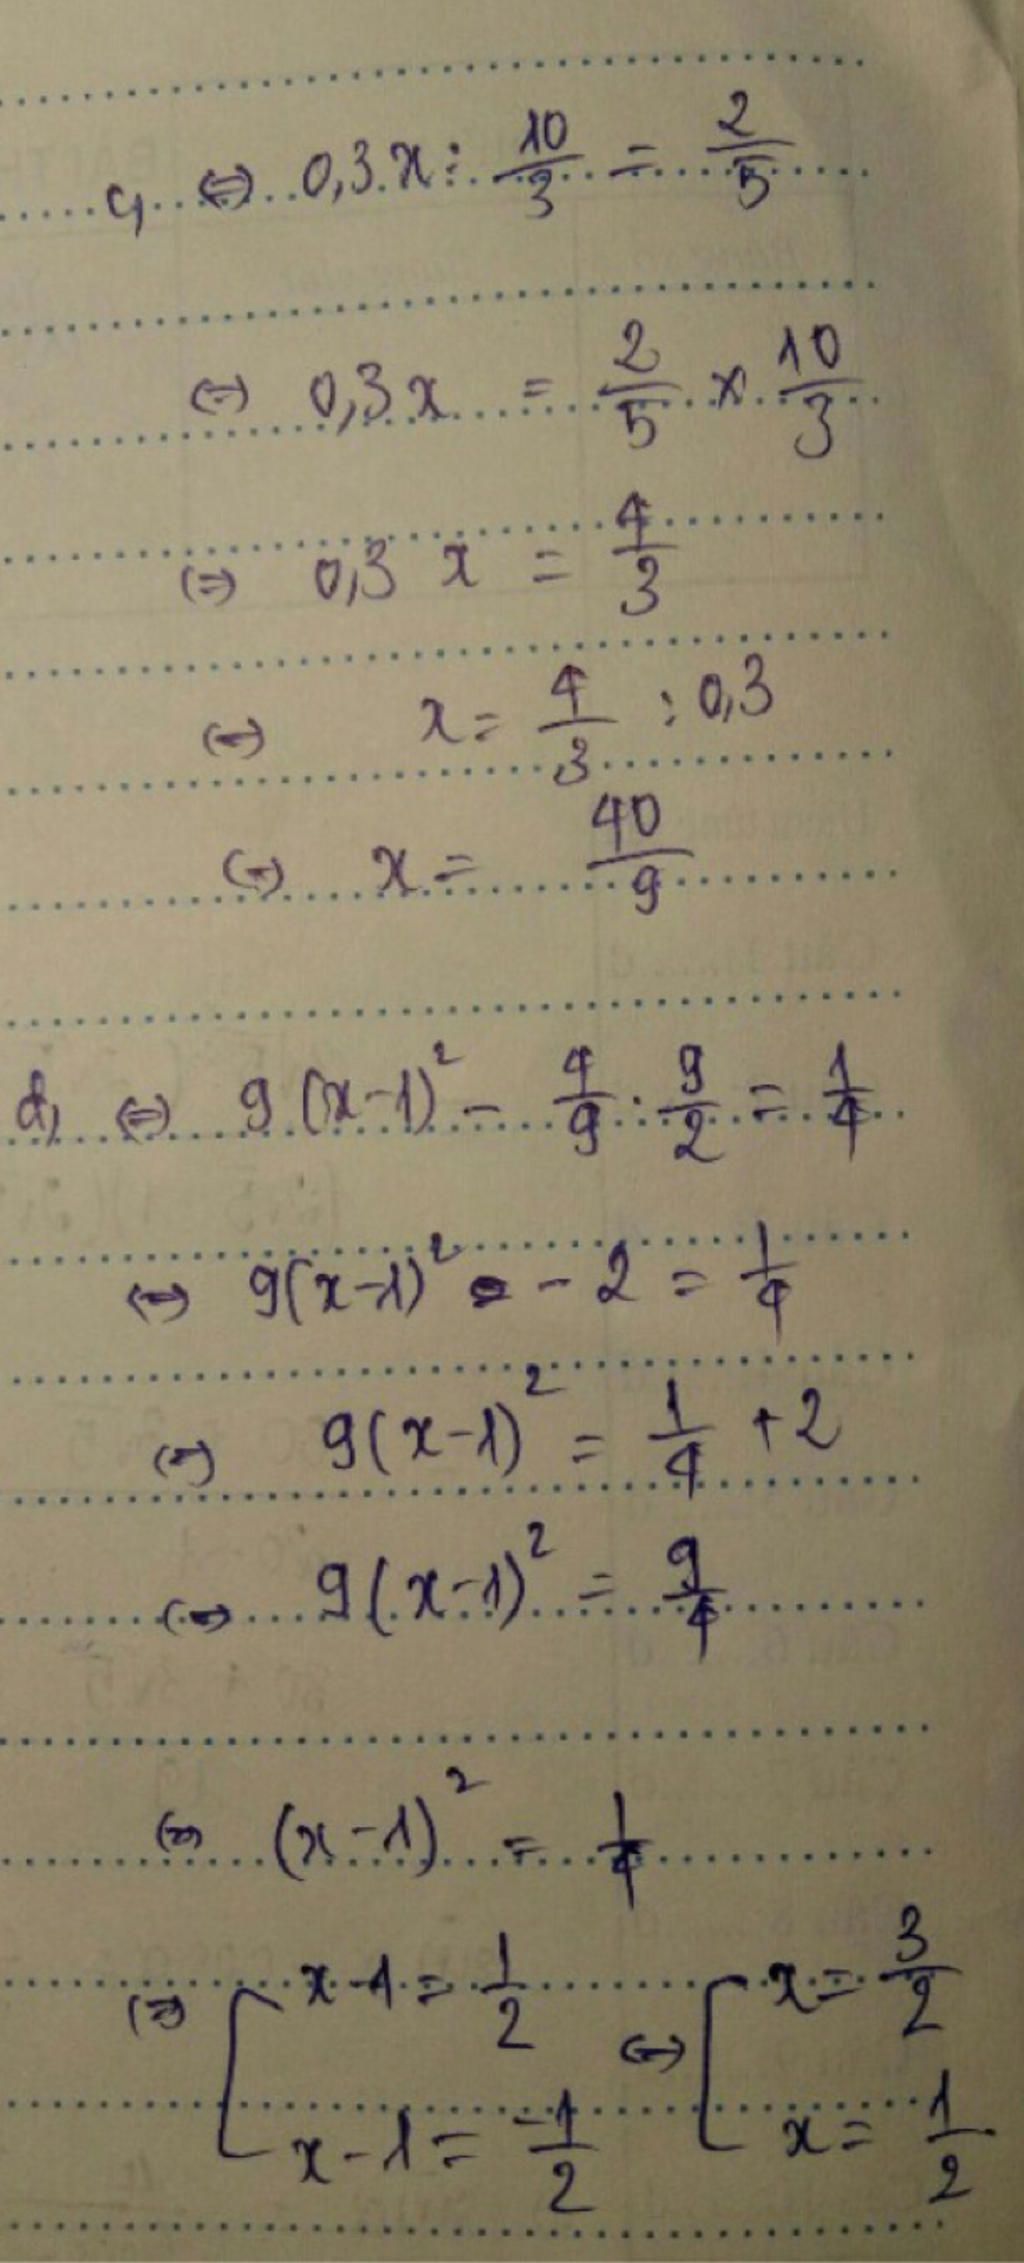 c, ⇔ 0,3.x : 10/3 = 2/5
⇔ 0,3x = 2/5 × 10/3
⇔ 0,3 x = 4/3
⇔ x = 4/3 : 0,3
⇔ x = 40/9
d, ⇔ 9(x-1)² - 4/9 : 9/2 = 1/4
⇔ 9(x-1)² - 2 = 1/4
⇔ 9(x-1)² = 1/4 + 2
⇔ 9(x-1)² = 9/4
⇔ (x-1)² = 1/4
⇔ [ x-1 = 1/2 ⇔ [ x = 3/2
x-1 = -1/2 x = 1/2